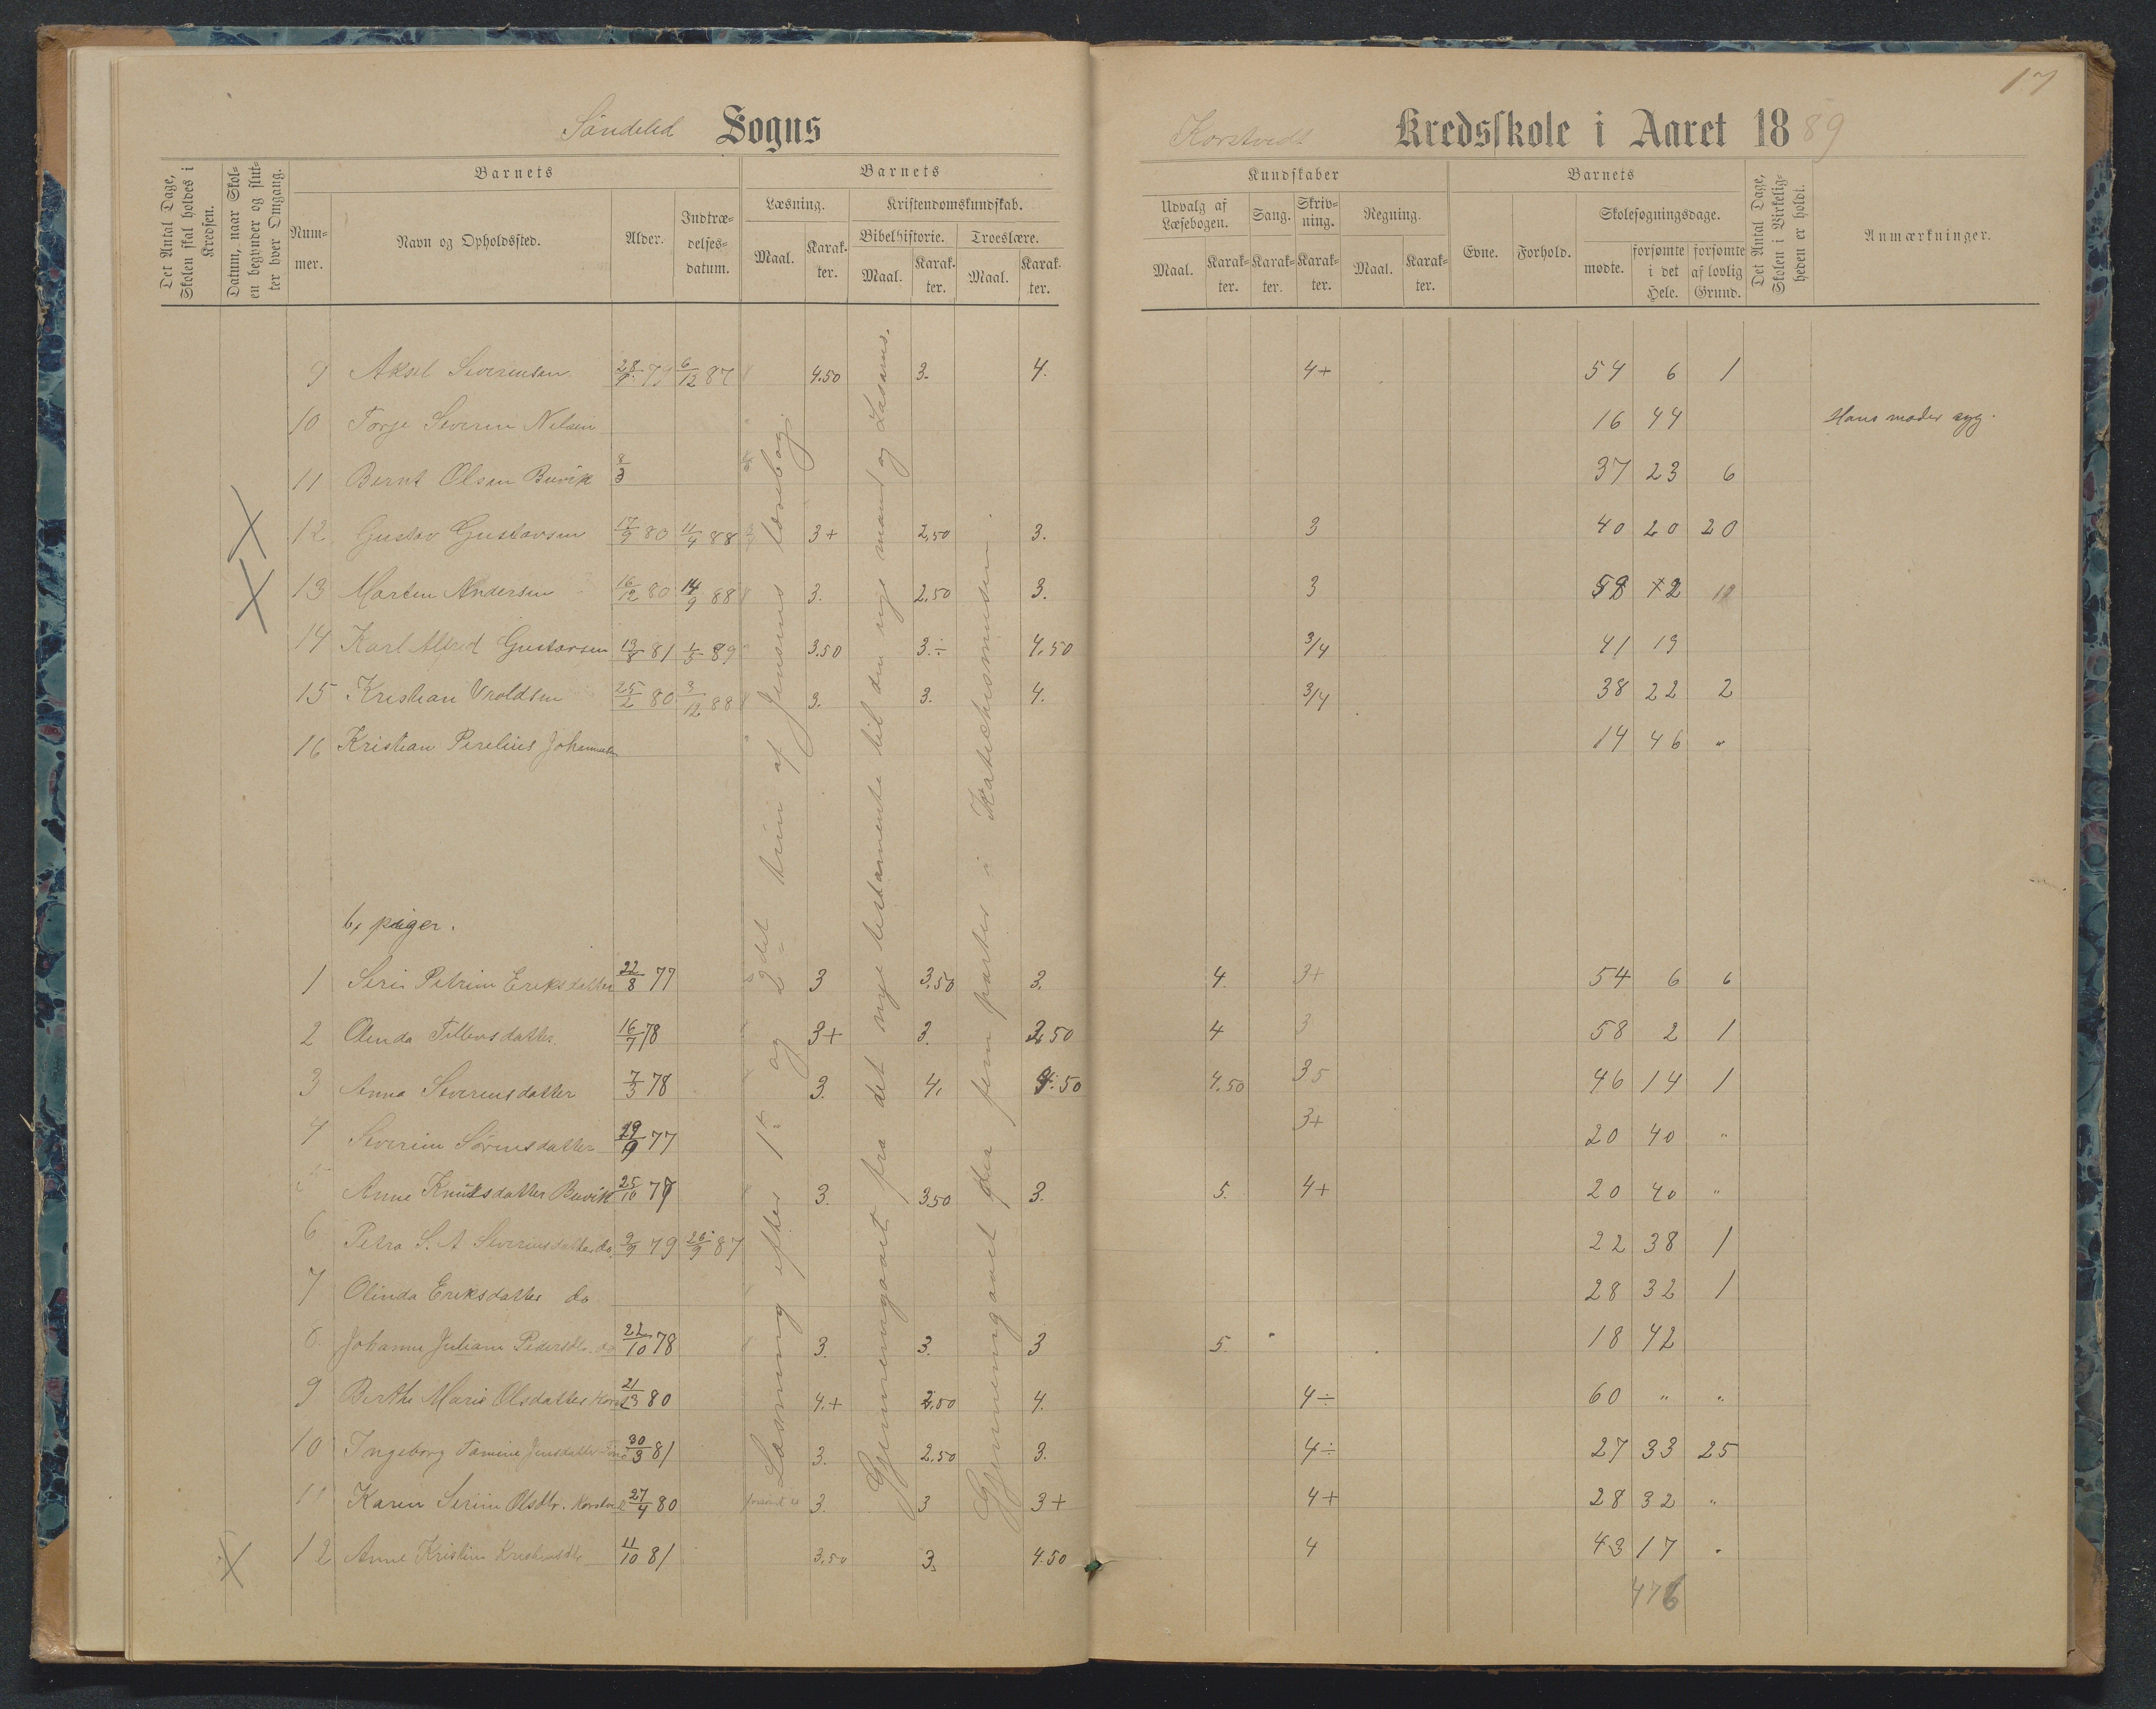 17
Söndeled Sogns
Korstvedt Kredsskole i Aaret 1889
Det Antal Dage, Skolen skal holdes i Kredsen.
Datum, naar Skolen begynder og slutter hver Omgang.
Barnets
Nummer.
Navn og Opholdssted.
Alder.
Indtrædelsesdatum.
Barnets
Læsning.
Maal.
Karakter.
Kristendomskundskab.
Bibelhistorie.
Maal.
Karakter.
Troeslære.
Maal.
Karakter.
Kundskaber
Udvalg af Læsebogen.
Maal.
Karakter.
Sang.
Karakter.
Skrivning.
Karakter.
Regning.
Maal.
Karakter.
Barnets
Evne.
Forhold.
Skolesøgningsdage.
mødte.
forsømte i det Hele.
forsømte af lovlig Grund.
Det Antal Dage, Skolen i Virkeligheden er holdt.
Anmærkninger.
9 Aksel Severensen 28/9 79 6/12 87 4.50 3. 4. 4+ 54 6 1
10 Torje Severin Nelsen 16 44 Hans moder syg.
11 Bernt Olsen Buvik 37 23 6
12 Gustav Gustavsen 17/9 80 11/4 88 3+ 2,50 3. 3 40 20 20
13 Morten Andersen 16/12 80 14/9 88 3. 2.50 3. 3 58 2
14 Karl Alfred Gustavsen 13/8 81 1/5 89 3.50 3.÷ 4.50 3/4 41 19
15 Kristian Vroldsen 25/2 80 3/12 88 3. 3. 4. 3/4 38 22 2
16 Kristian Perelius Johannesen 14 46 "
b, piger.
1 Seri Petrine Eriksdatter 22/8 77 3 3,50 3. 4. 3+ 54 6 6
2 Olenda Tellevsdatter. 16/7 78 3+ 3. 3,50 4 3 58 2 1
3 Anna Severensdatter 7/3 78 3. 4. 4.50 4.50 35 46 14 1
4 Severine Sörensdatter 29/9 77 3+ 20 40 "
5 Anne Knutsdatter Buvik 25/10 77 3. 3.50 3. 5. 4+ 20 40 "
6 Petra S. A. Severinsdatter do. 9/9 79 26/9 87 22 38 1
7 Olinda Eriksdatter do 28 32 1
8. Johanne Juliane Pedersdtr. do 22/10 78 3. 3. 3 5. 18 42
9 Berthe Marie Olsdatter 21/3 80 4.+ 2,50 4. 4÷ 60 " "
10 Ingeborg Tomine Jensdatter 30/3 81 3. 2.50 3. 4÷ 27 33 25
11 Karen Serine Olsdtr. Korstvedt 27/4 80 3. 3 3+ 4+ 28 32 "
12 Anne Kristine 11/10 81 3,50 3. 4.50 4 43 17 "
476
Læsning efter 1ste og 2det trin af Jensens læsebog.
Gjennemgaaet fra det nye testamente til den
Gjennemgaaet de fem parter i Katechismusen.